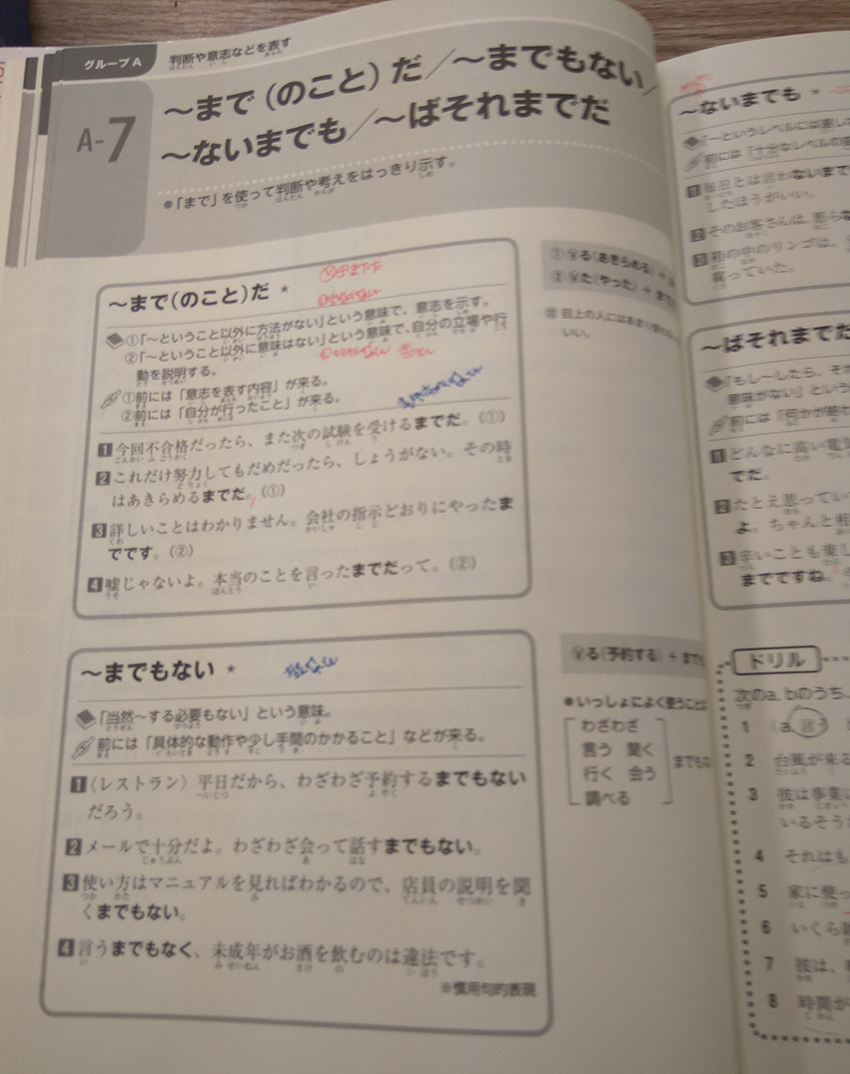 グループA
判断や意志などを表す
A-7
〜まで(のこと)だ／〜までもない／
〜ないまでも／〜ばそれまでだ
●「まで」を使って判断や考えをはっきり示す。
〜まで(のこと)だ ★
①「〜ということ以外に方法がない」という意味で、意志を示す。
②「〜ということ以外に意味はない」という意味で、自分の立場や行
動を説明する。
①前には「意志を表す内容」が来る。
②前には「自分が行ったこと」が来る。
1 今回不合格だったら、また次の試験を受けるまでだ。(①)
2 これだけ努力してもだめだったら、しょうがない。その時
はあきらめるまでだ。(①)
3 詳しいことはわかりません。会社の指示どおりにやったま
でです。(②)
4 嘘じゃないよ。本当のことを言ったまでだって。(②)
① Vる(あきらめる) +
② Vた(やった) + まで
※ 目上の人にはあまり
いい。
〜までもない ★
「当然〜する必要もない」という意味。
前には「具体的な動作や少し手間のかかること」などが来る。
1 〈レストラン〉平日だから、わざわざ予約するまでもない
だろう。
2 メールで十分だよ。わざわざ会って話すまでもない。
3 使い方はマニュアルを見ればわかるので、店員の説明を聞
くまでもない。
4 言うまでもなく、未成年がお酒を飲むのは違法です。
※慣用句的表現
Vる(予約する) + まで
●いっしょによく使うことば
わざわざ
言う 聞く
行く 会う
調べる
までもな
〜ないまでも ★
「〜というレベルには達し
前には「十分なレベルの
1 毎日とは言わないまで
したほうがいい。
2 そのお客さんは、怒らな
3 箱の中のリンゴは、
腐っていた。
〜ばそれまでだ
「もし〜したら、それ
意味がない」という
前には「何かが
1 どんなに高い電
でだ。
2 たとえ思ってい
よ。ちゃんと相
3 辛いことも楽し
までですね。
ドリル
次のa、bのうち、
1 (a. 言う
2 台風が来る
3 彼は事業に
いるそうだ
4 それはも
5 家に襲っ
6 いくら
7 彼は、
8 時間が